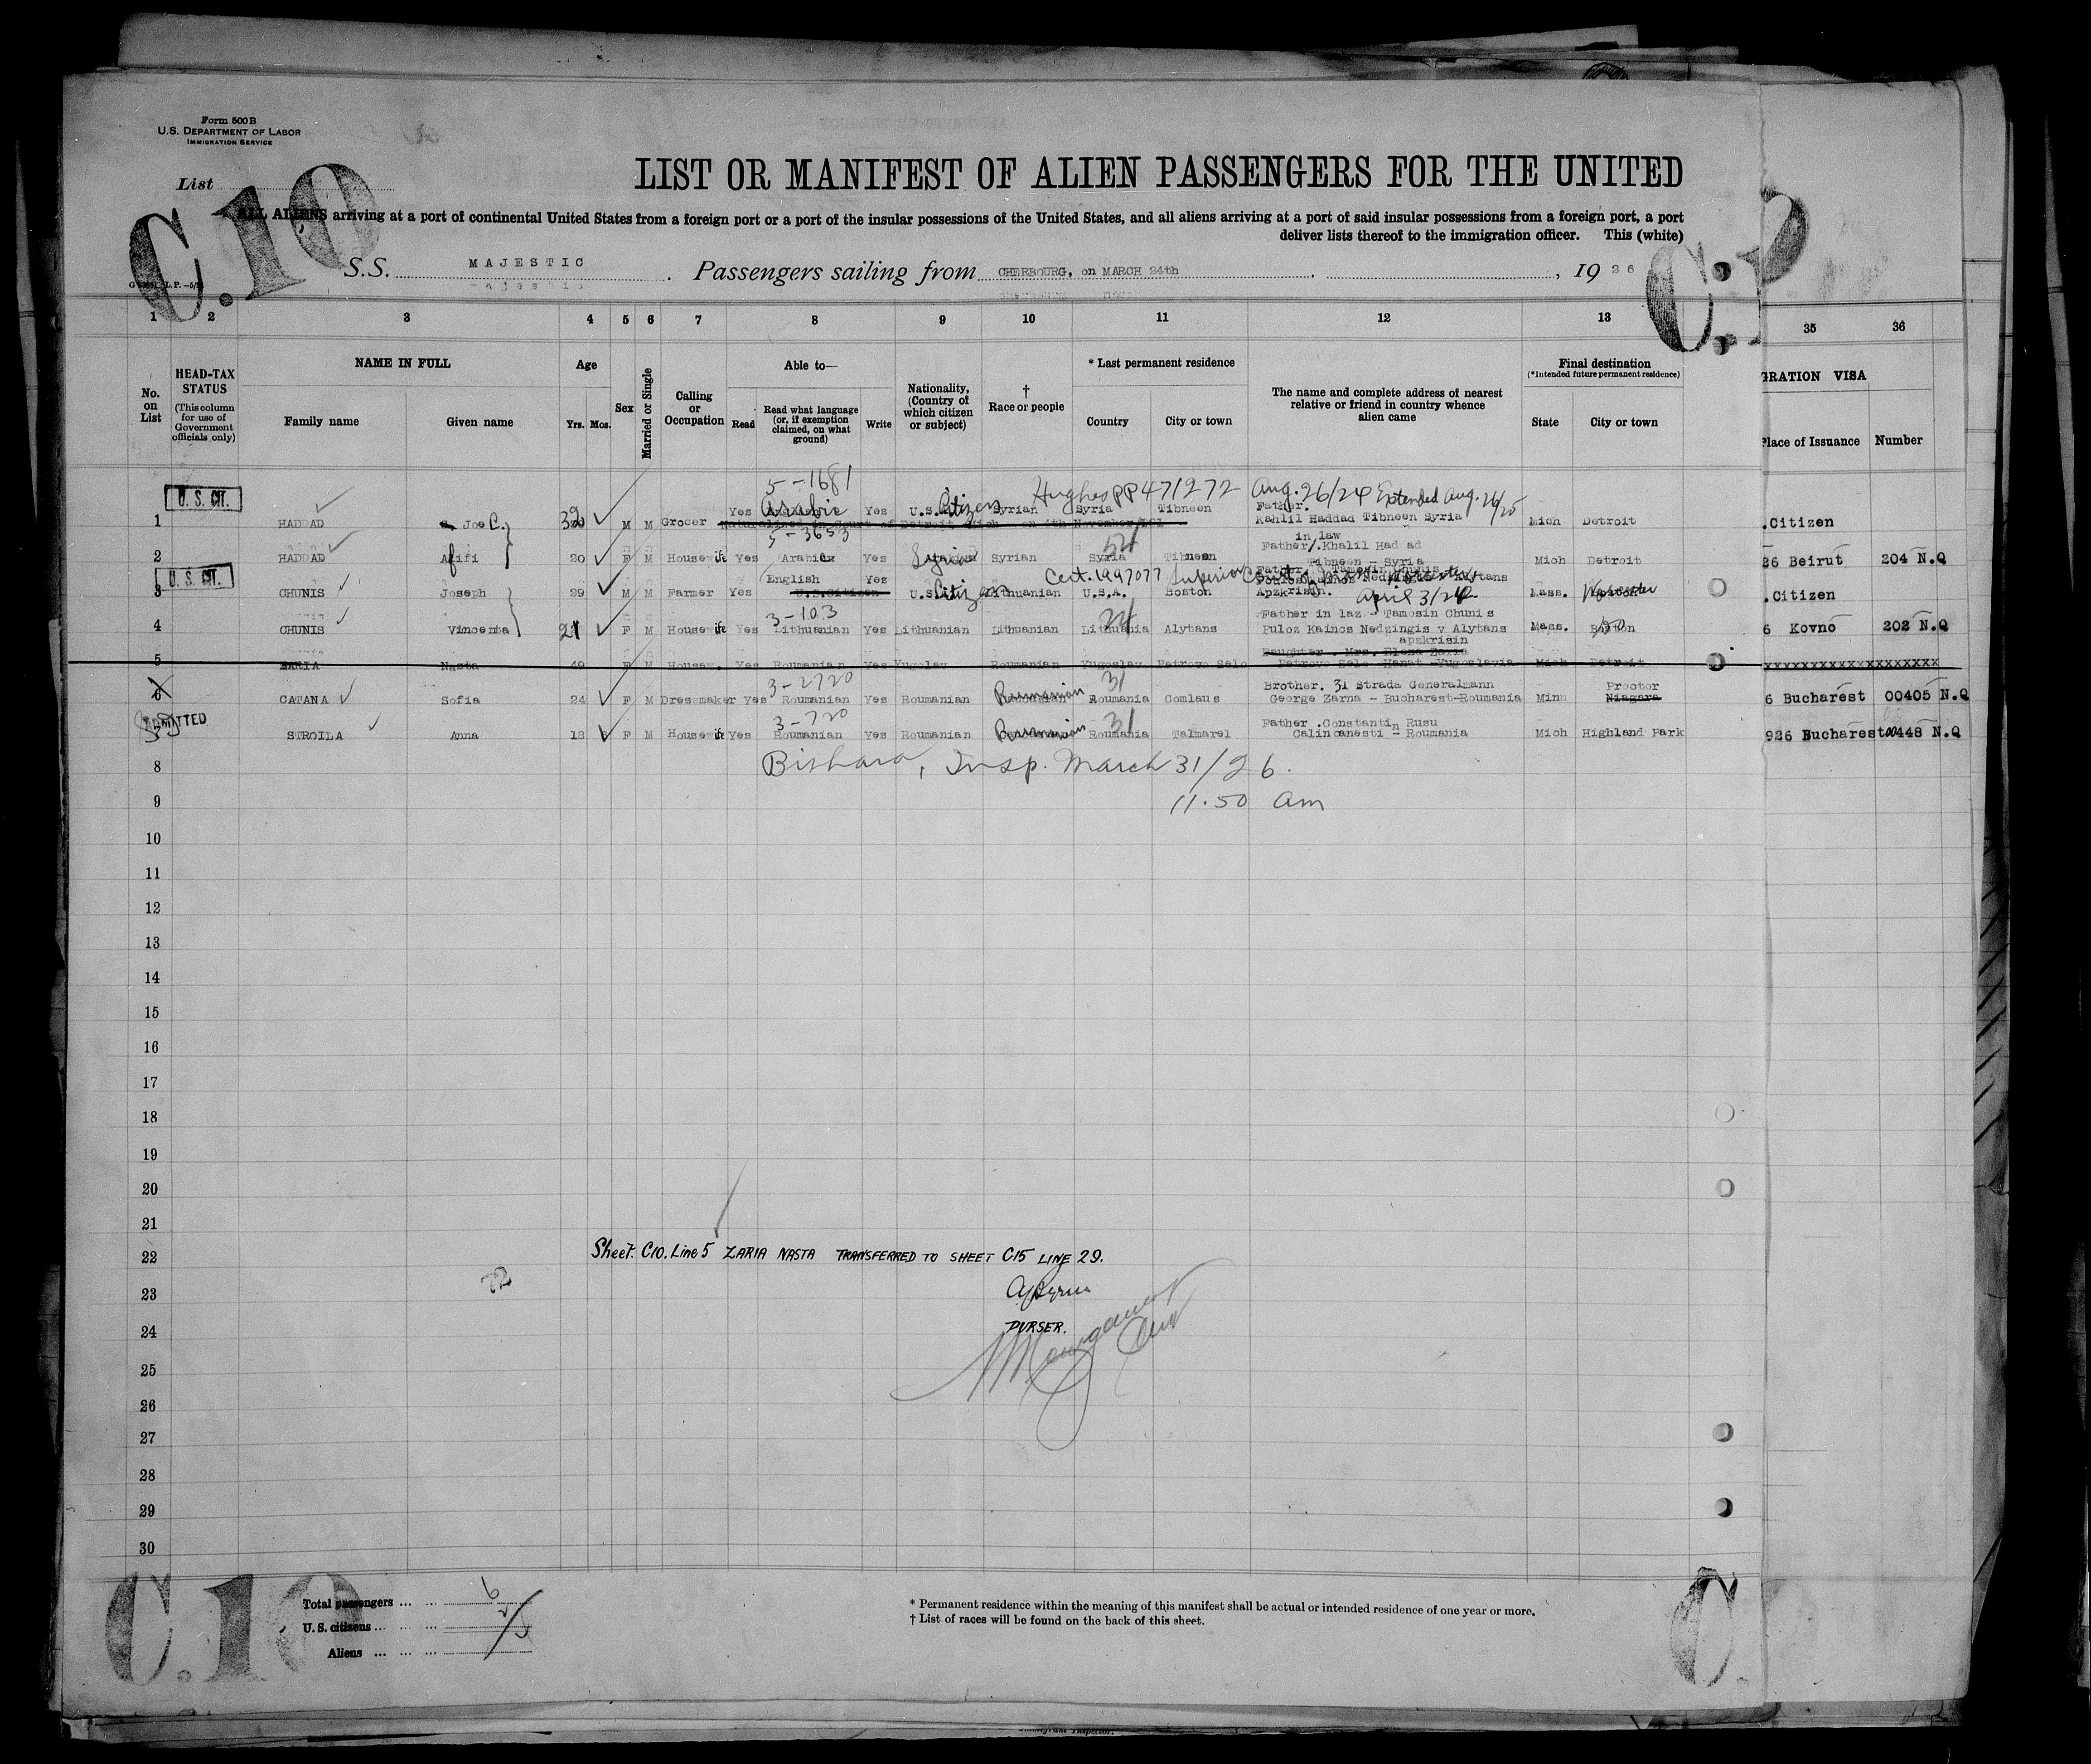 Form 500 B
U.S. DEPARTMENT OF LABOR
IMMIGRATION SERVICE
List
C.10
LIST OR MANIFEST OF ALIEN PASSENGERS FOR THE UNITED
ALL ALIENS arriving at a port of continental United States from a foreign port or a port of the insular possessions of the United States, and all aliens arriving at a port of said insular possessions from a foreign port, a port
deliver lists thereof to the immigration officer. This (white)
S.S. MAJESTIC. Passengers sailing from CHERBOURG, on MARCH 24th, 1926
1 2 3 4 5 6 7 8 9 10 11 12 13 35 36
No. on List
HEAD-TAX STATUS (This column for use of Government officials only)
NAME IN FULL
Family name Given name
Age
Yrs. Mos.
Sex
Married or Single
Calling or Occupation
Able to—
Read Read what language (or, if exemption claimed, on what ground) Write
Nationality, (Country of which citizen or subject)
† Race or people
* Last permanent residence
Country City or town
The name and complete address of nearest relative or friend in country whence alien came
Final destination
(*Intended future permanent residence)
State City or town
GRATION VISA
Place of Issuance Number
5-1681
U. S. CIT. Hughes PP 471272 Aug. 26/24 Extended Aug. 26/25
1 HADDAD Joe C. M M Grocer Yes Arabic Yes U.S. Citizen Syrian Syria Tibneen Father. Kahlil Haddad Tibneen Syria Mich Detroit .Citizen
Naturalized in Court of Detroit Mich on 4th November
5-3653
2 HADDAD Afifi 20 F M Housewife Yes Arabic Yes Syrian Syrian Syria Tibneen Father in law. Khalil Haddad Tibneen - Syria Mich Detroit 26 Beirut 204 N.Q
U. S. CIT. English Yes Cert. 1997077 Superior Court April 3/24
3 CHUNIS Joseph 29 M M Farmer Yes U.S. Citizen Lithuanian U.S.A. Boston Apzkrisin. Mass. Worcester .Citizen
3-103
4 CHUNIS Vincenta 21 F M Housewife Yes Lithuanian Yes Lithuanian Lithuanian Lithuania Alytans Father in laz - Tamosin Chunis Puloz Kainos Nedzingis v Alytans apzkrisin Mass. Boston 6 Kovno 202 N.Q
5 ZARIA Nasta 49 F M Housew. Yes Roumanian Yes Yugoslav Roumanian Yugoslav Petrovo Selo Daughter. Mrs. Elena Zaria Petrovo Selo Banat Yugoslavia Mich Detroit xxxxxxxxxxxxxxxxxxxx
3-2720 31
6 CATANA Sofia 24 F M Dressmaker Yes Roumanian Yes Roumanian Roumanian Roumania Comlaus Brother. 31 Strada Generalmann George Zarna - Bucharest-Roumania Minn Proctor Niagara 6 Bucharest 00405 N.Q
ADMITTED 3-720 31
STROILA Anna 18 F M Housewife Yes Roumanian Yes Roumanian Roumanian Roumania Talmarel Father .Constantin Rusu Calincanesti - Roumania Mich Highland Park 926 Bucharest 00448 N.Q
8 Bishara, Insp. March 31/26.
9 11.50 am
10
11
12
13
14
15
16
17
18
19
20
21
22 Sheet. C10. Line 5 ZARIA NASTA TRANSFERRED TO SHEET C15 LINE 29.
23
24 PURSER.
25
26
27
28
29
30
C.10
Total passengers ... ... 6
U. S. citizens ... ... 2
Aliens ... ... ...
* Permanent residence within the meaning of this manifest shall be actual or intended residence of one year or more.
† List of races will be found on the back of this sheet.